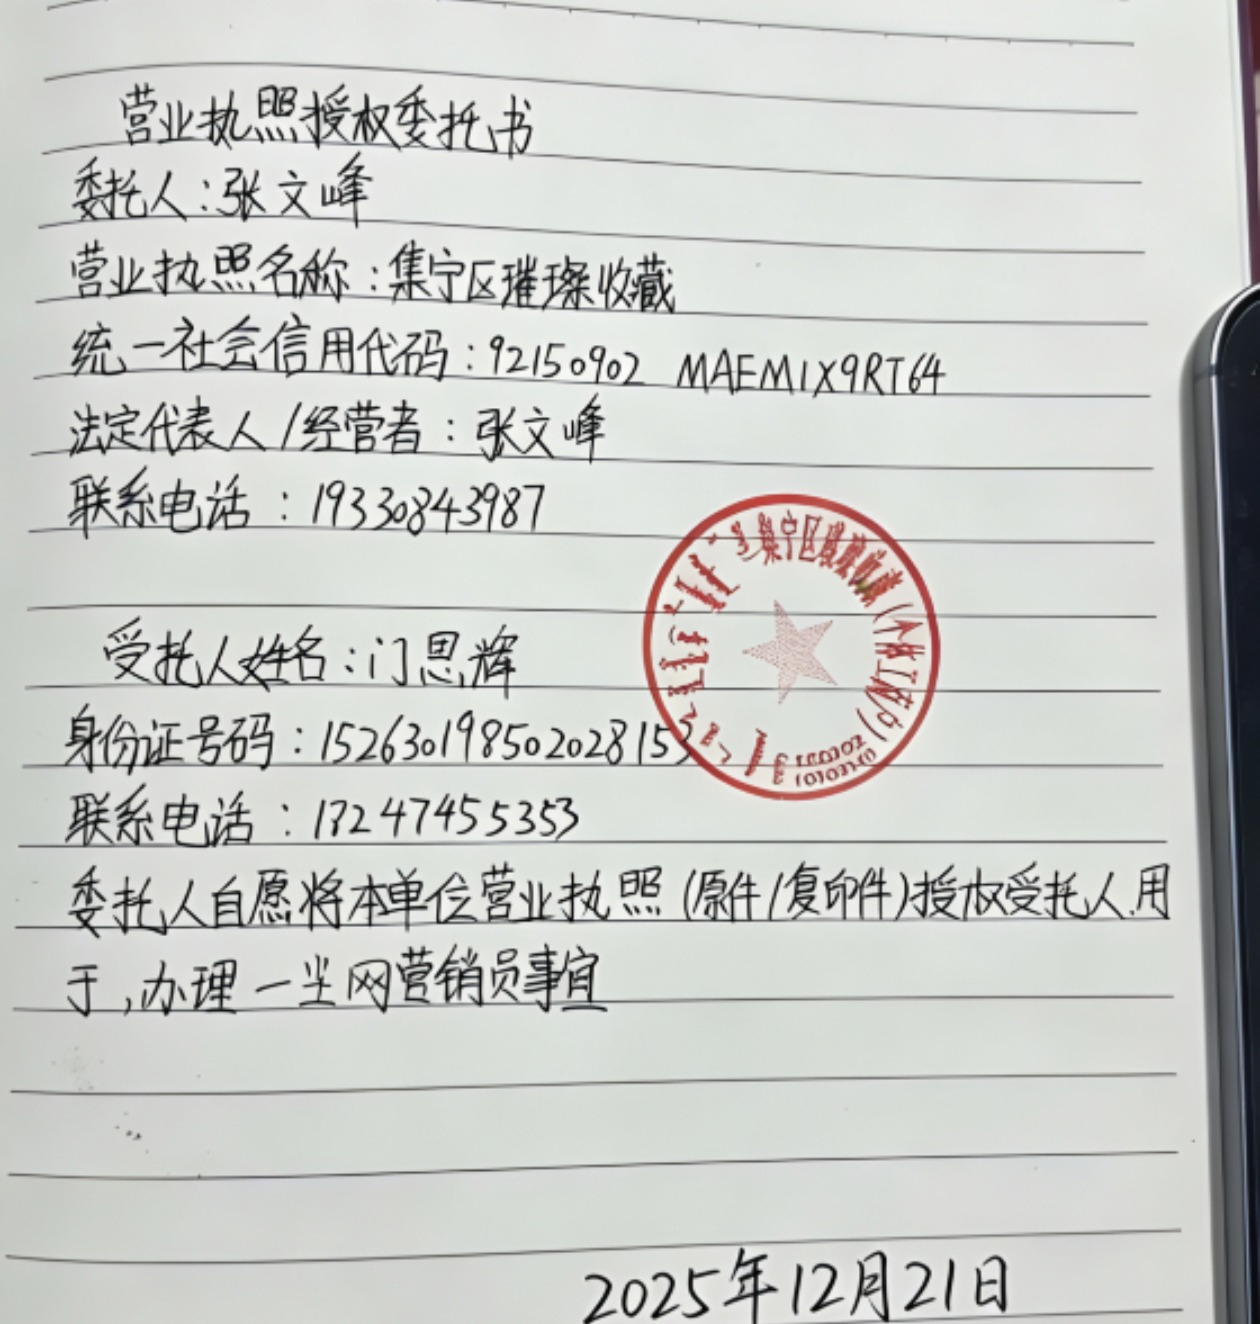 营业执照授权委托书
委托人：张文峰
营业执照名称：集宁区璀璨收藏
统一社会信用代码：92150902 MAEM1X9RT64
法定代表人/经营者：张文峰
联系电话：19330843987
集宁区璀璨收藏(个体工商户)
受托人姓名：门思辉
身份证号码：152630198502028153
联系电话：18247455353
委托人自愿将本单位营业执照(原件/复印件)授权受托人用
于,办理一尘网营销员事宜
2025年12月21日